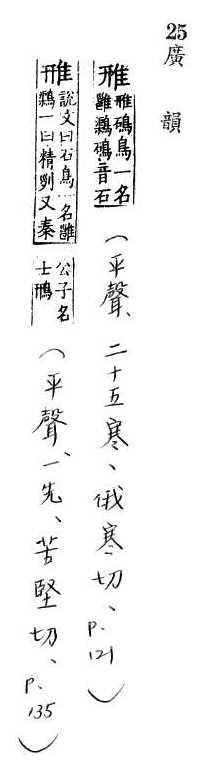 25廣韻
雃
雃鳥一名
雝音石
（平聲、二十五寒、俄寒切、p.121）
雃
說文曰石鳥一名雝
一曰精列又秦
公子名
士鳽
（平聲、一先、苦堅切、p.135）